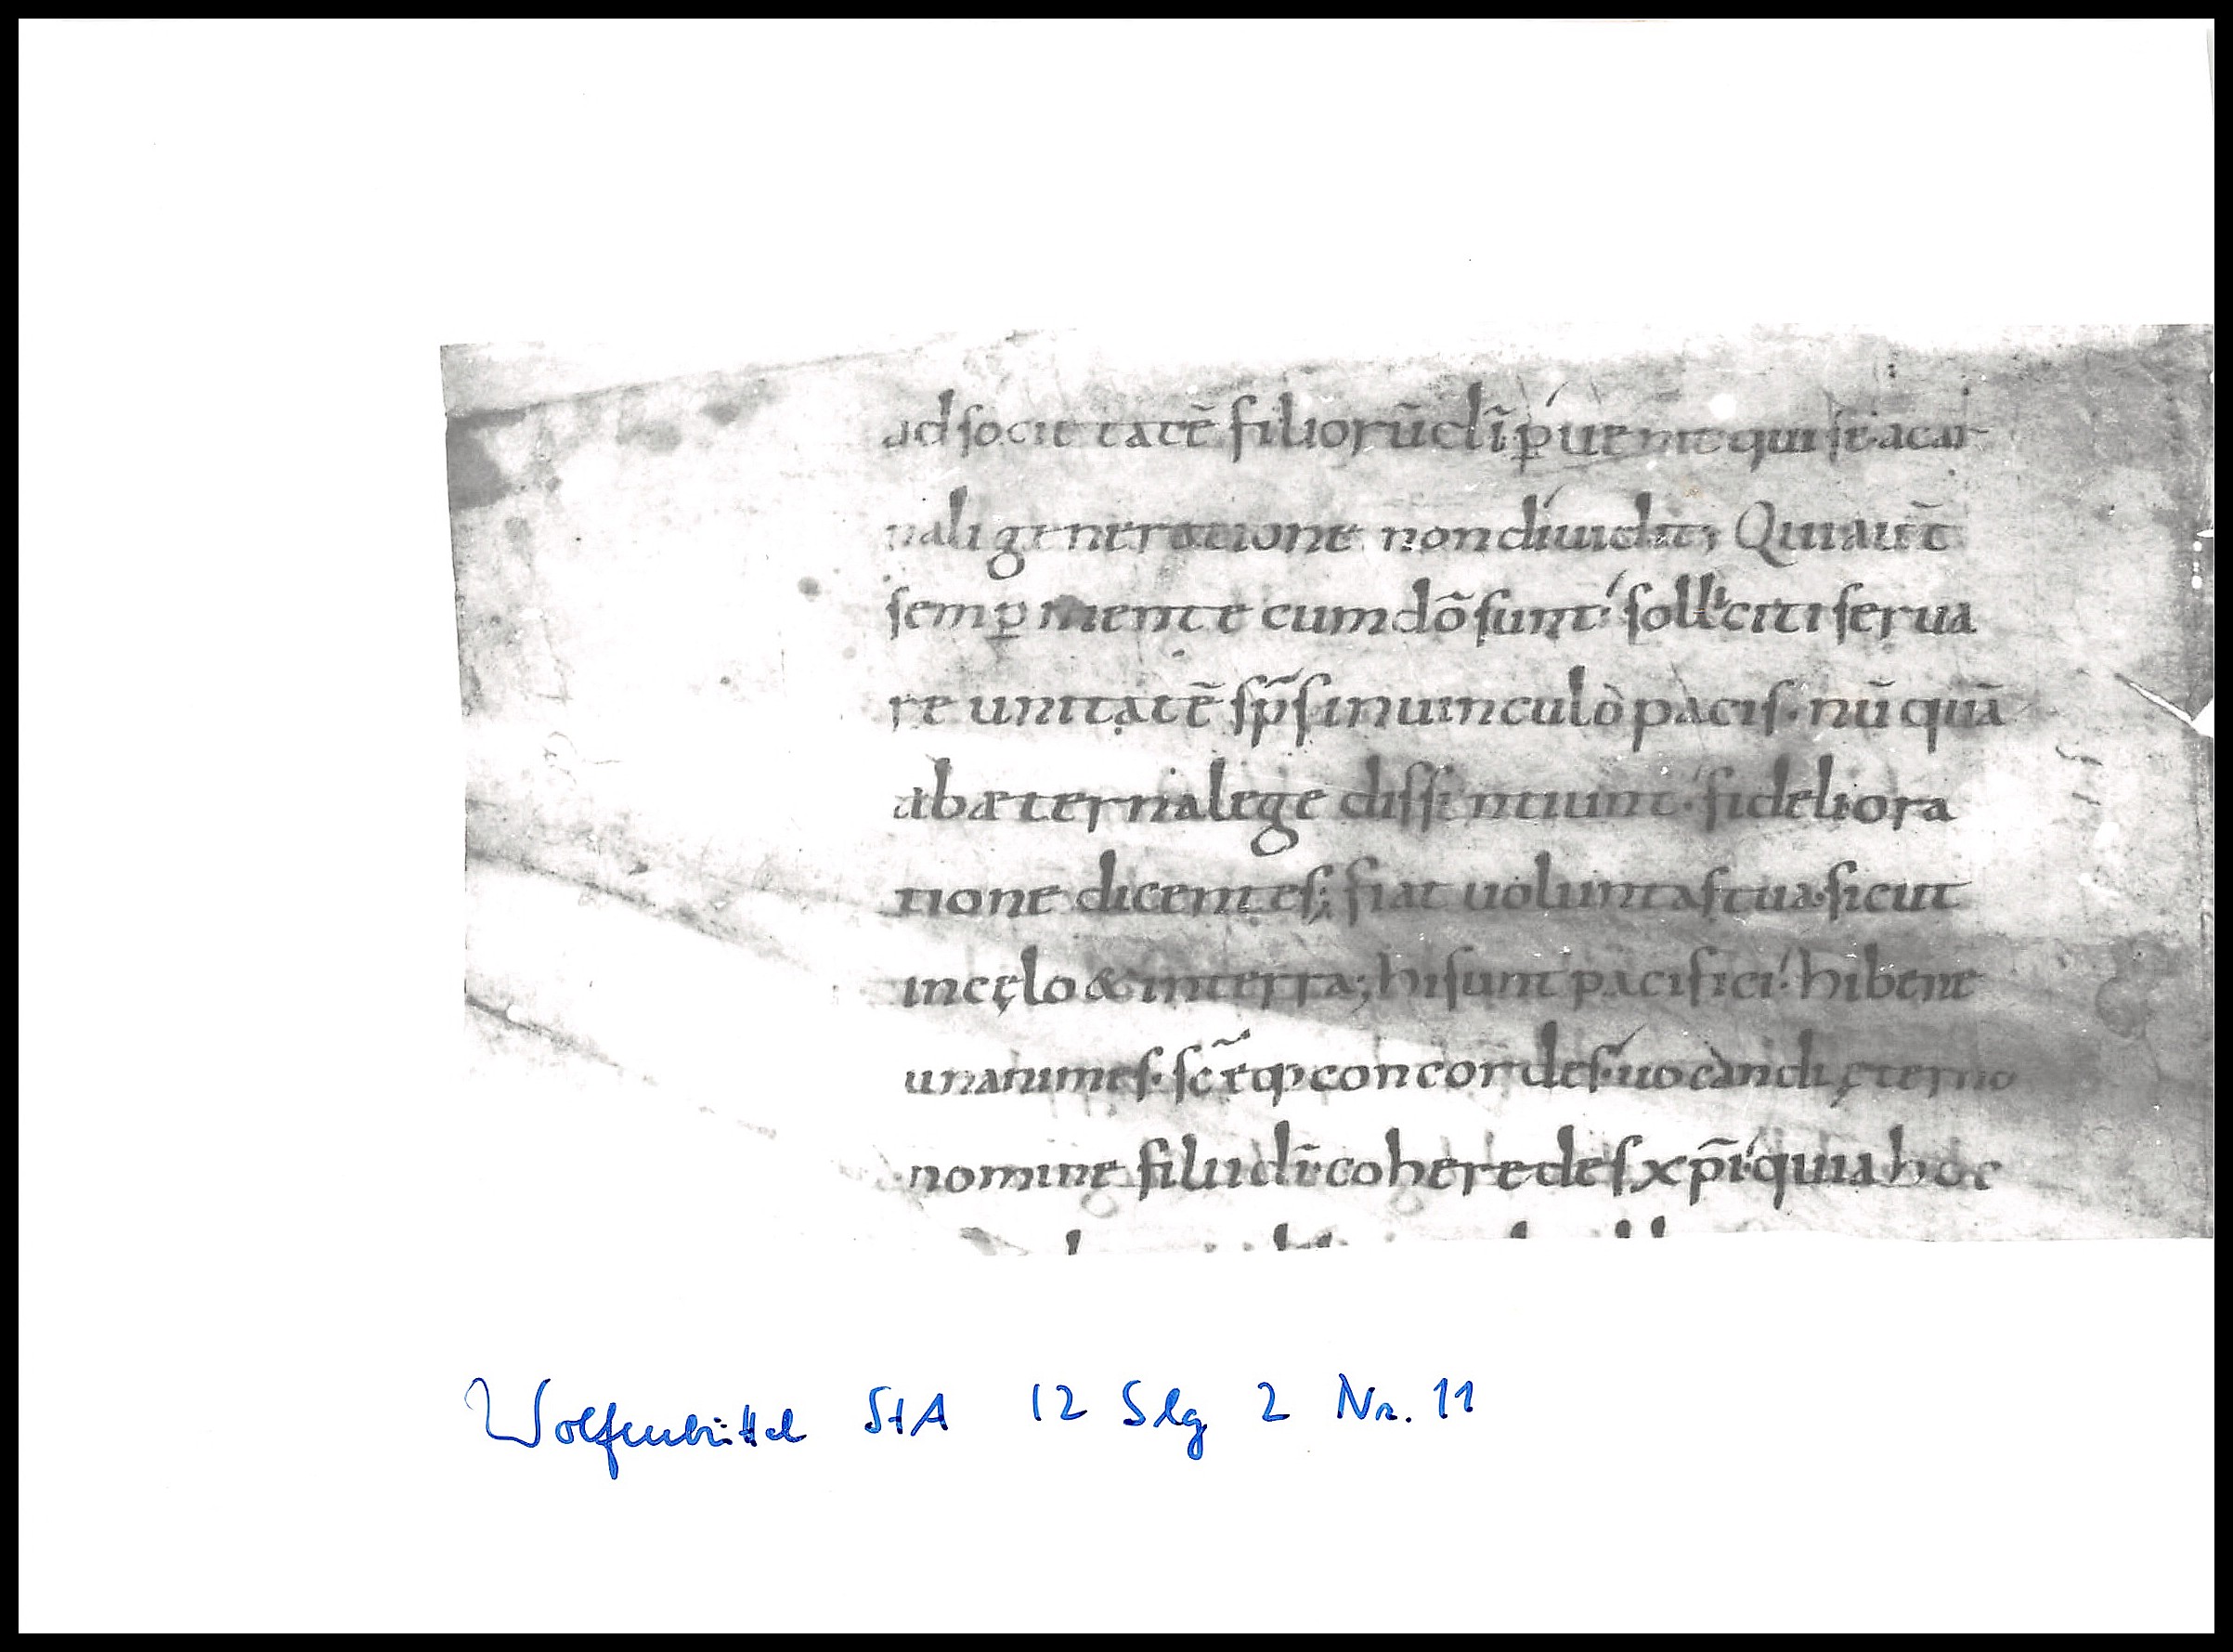 ad societatē filiorū dī ꝑuenit qui se a car
nali generatione non diuidit; Qui aut̄
semꝑ mente cum dō sunt· solliciti serua
re unitatē sp̄s in uinculo pacis· nū quā
ab aeterna lege dissentiunt· fideli ora
tione dicentes; fiat uoluntas tua· sicut
in cęlo & in terra; hi sunt pacifici· hi bene
unanimes· sc̄eq; concordes· uocandi ęterno
nomine filii dī· coheredes xp̄i· quia hoc
Wolfenbüttel StA 12 Slg 2 Nr. 11